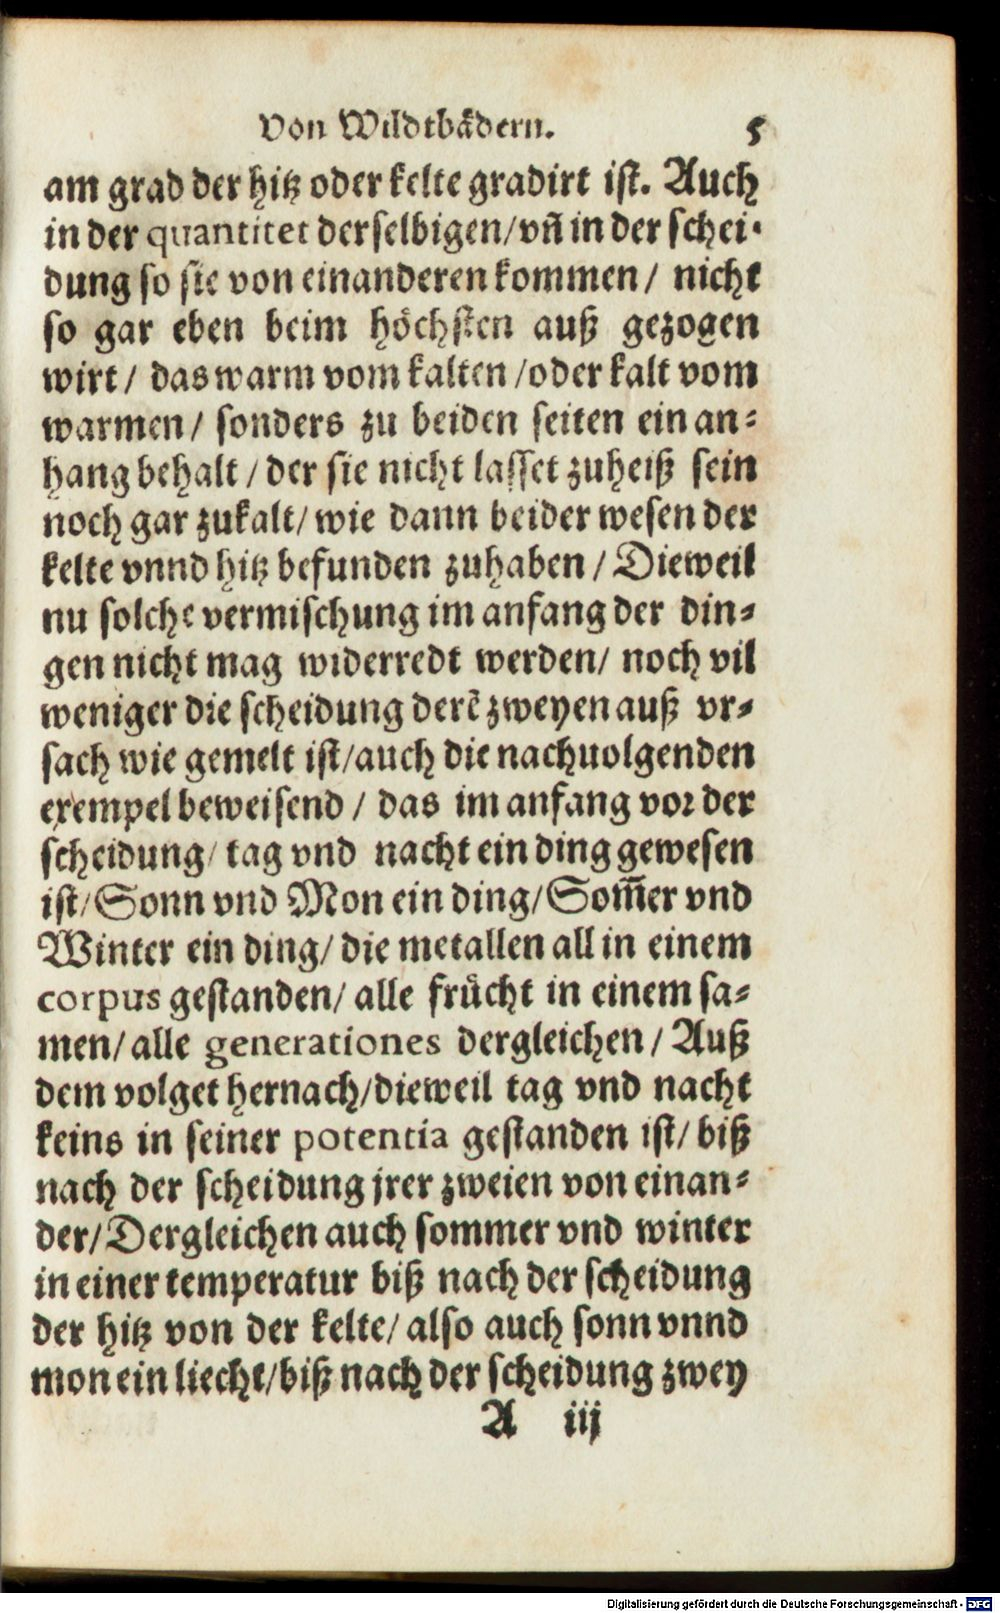 Von Wildtbådern. 5
am grad der hitz oder kelte gradirt ist. Auch
in der quantitet derselbigen/vñ in der schei-
dung so sie von einanderen kommen/ nicht
so gar eben beim höchsten auß gezogen
wirt/ das warm vom kalten/oder kalt vom
warmen/ sonders zu beiden seiten ein an-
hang behalt/ der sie nicht lasset zuheiß sein
noch gar zukalt/ wie dann beider wesen der
kelte vnnd hitz befunden zuhaben/ Dieweil
nu solche vermischung im anfang der din-
gen nicht mag widerredt werden/ noch vil
weniger die scheidung derẽ zweyen auß vr-
sach wie gemelt ist/auch die nachuolgenden
exempel beweisend/ das im anfang vor der
scheidung/ tag vnd nacht ein ding gewesen
ist/ Sonn vnd Mon ein ding/ Som̃er vnd
Winter ein ding/ die metallen all in einem
corpus gestanden/ alle frůcht in einem sa-
men/ alle generationes dergleichen/ Auß
dem volget hernach/dieweil tag vnd nacht
keins in seiner potentia gestanden ist/ biß
nach der scheidung jrer zweien von einan-
der/Dergleichen auch sommer vnd winter
in einer temperatur biß nach der scheidung
der hitz von der kelte/ also auch sonn vnnd
mon ein liecht/biß nach der scheidung zwey
A iij
Digitalisierung gefördert durch die Deutsche Forschungsgemeinschaft - DFG